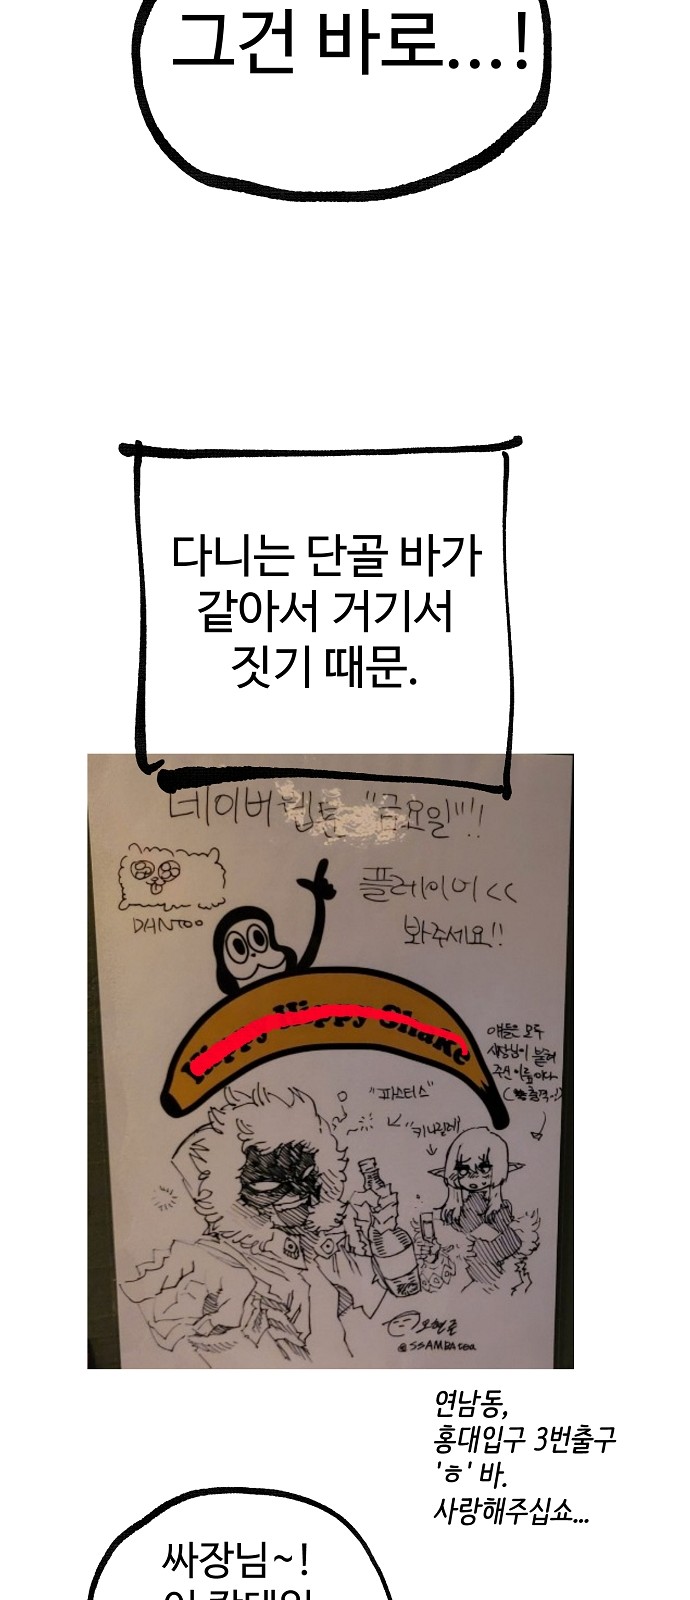 그건 바로...!
다니는 단골 바가
같아서 거기서
짓기 때문.
네이버웹툰 "금요일"!!
플레이어<<
봐주세요!!
DANTOO
Happy Hippy Shake
얘들은 모두
사장님이 불러
주신 이름이다
"파스터스"
"키나길레"
@SSAMBA
연남동,
홍대입구 3번출구
'ㅎ' 바.
사랑해주십쇼...
싸장님~!